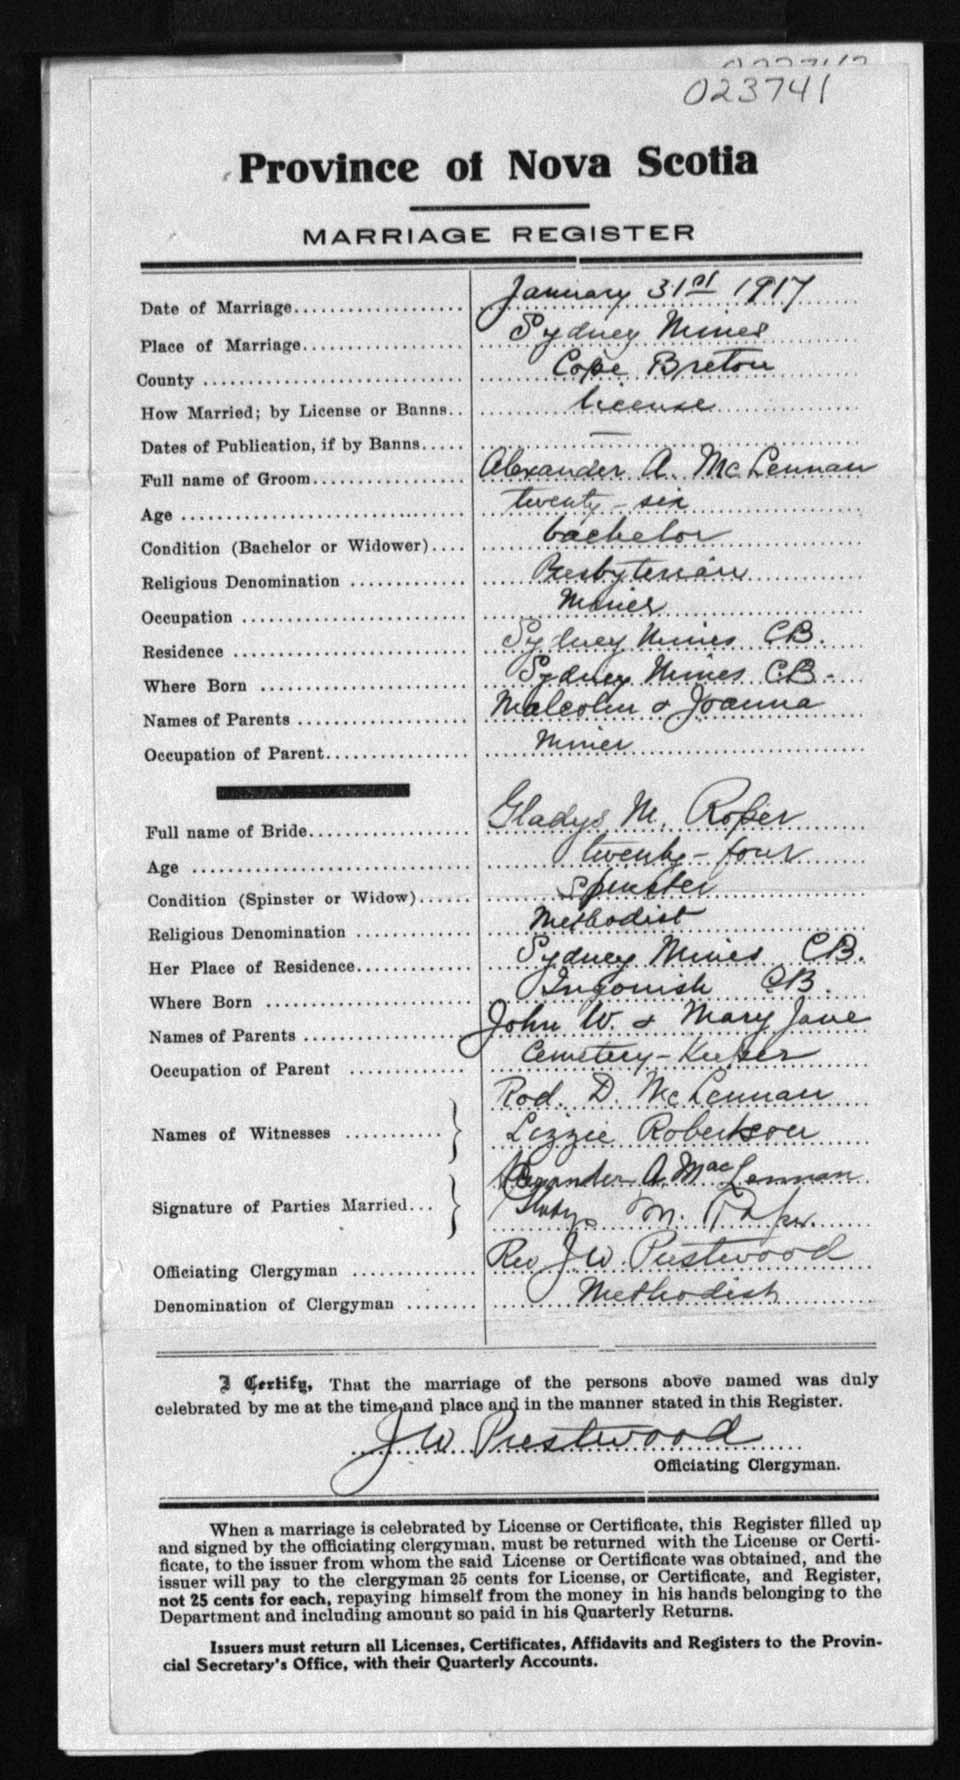 023741
Province of Nova Scotia
MARRIAGE REGISTER
Date of Marriage.................... January 31st 1917
Place of Marriage.................. Sydney Mines
County .............................. Cape Breton
How Married; by License or Banns.. License
Dates of Publication, if by Banns..... —
Full name of Groom.................. Alexander A. McLennan
Age .................................. twenty-six
Condition (Bachelor or Widower).... bachelor
Religious Denomination ............ Presbyterian
Occupation .......................... Miner
Residence ........................... Sydney Mines CB.
Where Born ........................ Sydney Mines CB.
Names of Parents .................. Malcolm & Joanna
Occupation of Parent................ Miner
Full name of Bride.................. Gladys M. Roper
Age .................................. twenty-four
Condition (Spinster or Widow)...... Spinster
Religious Denomination ............ Methodist
Her Place of Residence............. Sydney Mines CB.
Where Born ........................ Ingonish CB.
Names of Parents .................. John W. & Mary Jane
Occupation of Parent ............ Cemetery-Keeper
Rod. D. McLennan
Names of Witnesses .......... } Lizzie Robertson
Alexander A. MacLennan
Signature of Parties Married... } Gladys M. Roper.
Officiating Clergyman ............. Rev J W. Prestwood
Denomination of Clergyman ........ Methodist
I Certify, That the marriage of the persons above named was duly
celebrated by me at the time and place and in the manner stated in this Register.
J W Prestwood
Officiating Clergyman.
When a marriage is celebrated by License or Certificate, this Register filled up
and signed by the officiating clergyman, must be returned with the License or Certi-
ficate, to the issuer from whom the said License or Certificate was obtained, and the
issuer will pay to the clergyman 25 cents for License, or Certificate, and Register,
not 25 cents for each, repaying himself from the money in his hands belonging to the
Department and including amount so paid in his Quarterly Returns.
Issuers must return all Licenses, Certificates, Affidavits and Registers to the Provin-
cial Secretary's Office, with their Quarterly Accounts.